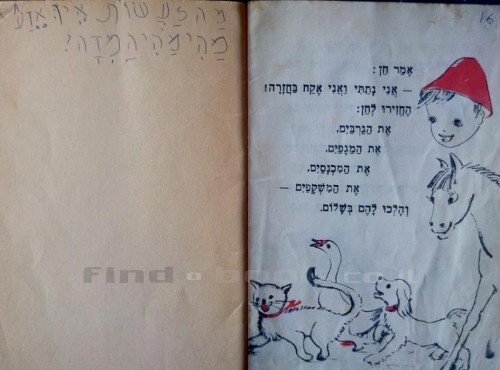 מַהִי מַהִי הַמִדָה!
16
אָמַר חֵן:
— אֲנִי נָתַתִּי וַאֲנִי אֶקַּח בַּחֲזָרָה!
הֶחֱזִירוּ לְחֵן:
אֶת הַגַּרְבַּיִם,
אֶת הַמַּגָּפַיִם,
אֶת הַמִּכְנָסַיִם,
אֶת הַמִּשְׁקָפַיִם —
וְהָלְכוּ לָהֶם בְּשָׁלוֹם.
Find a book.co.il